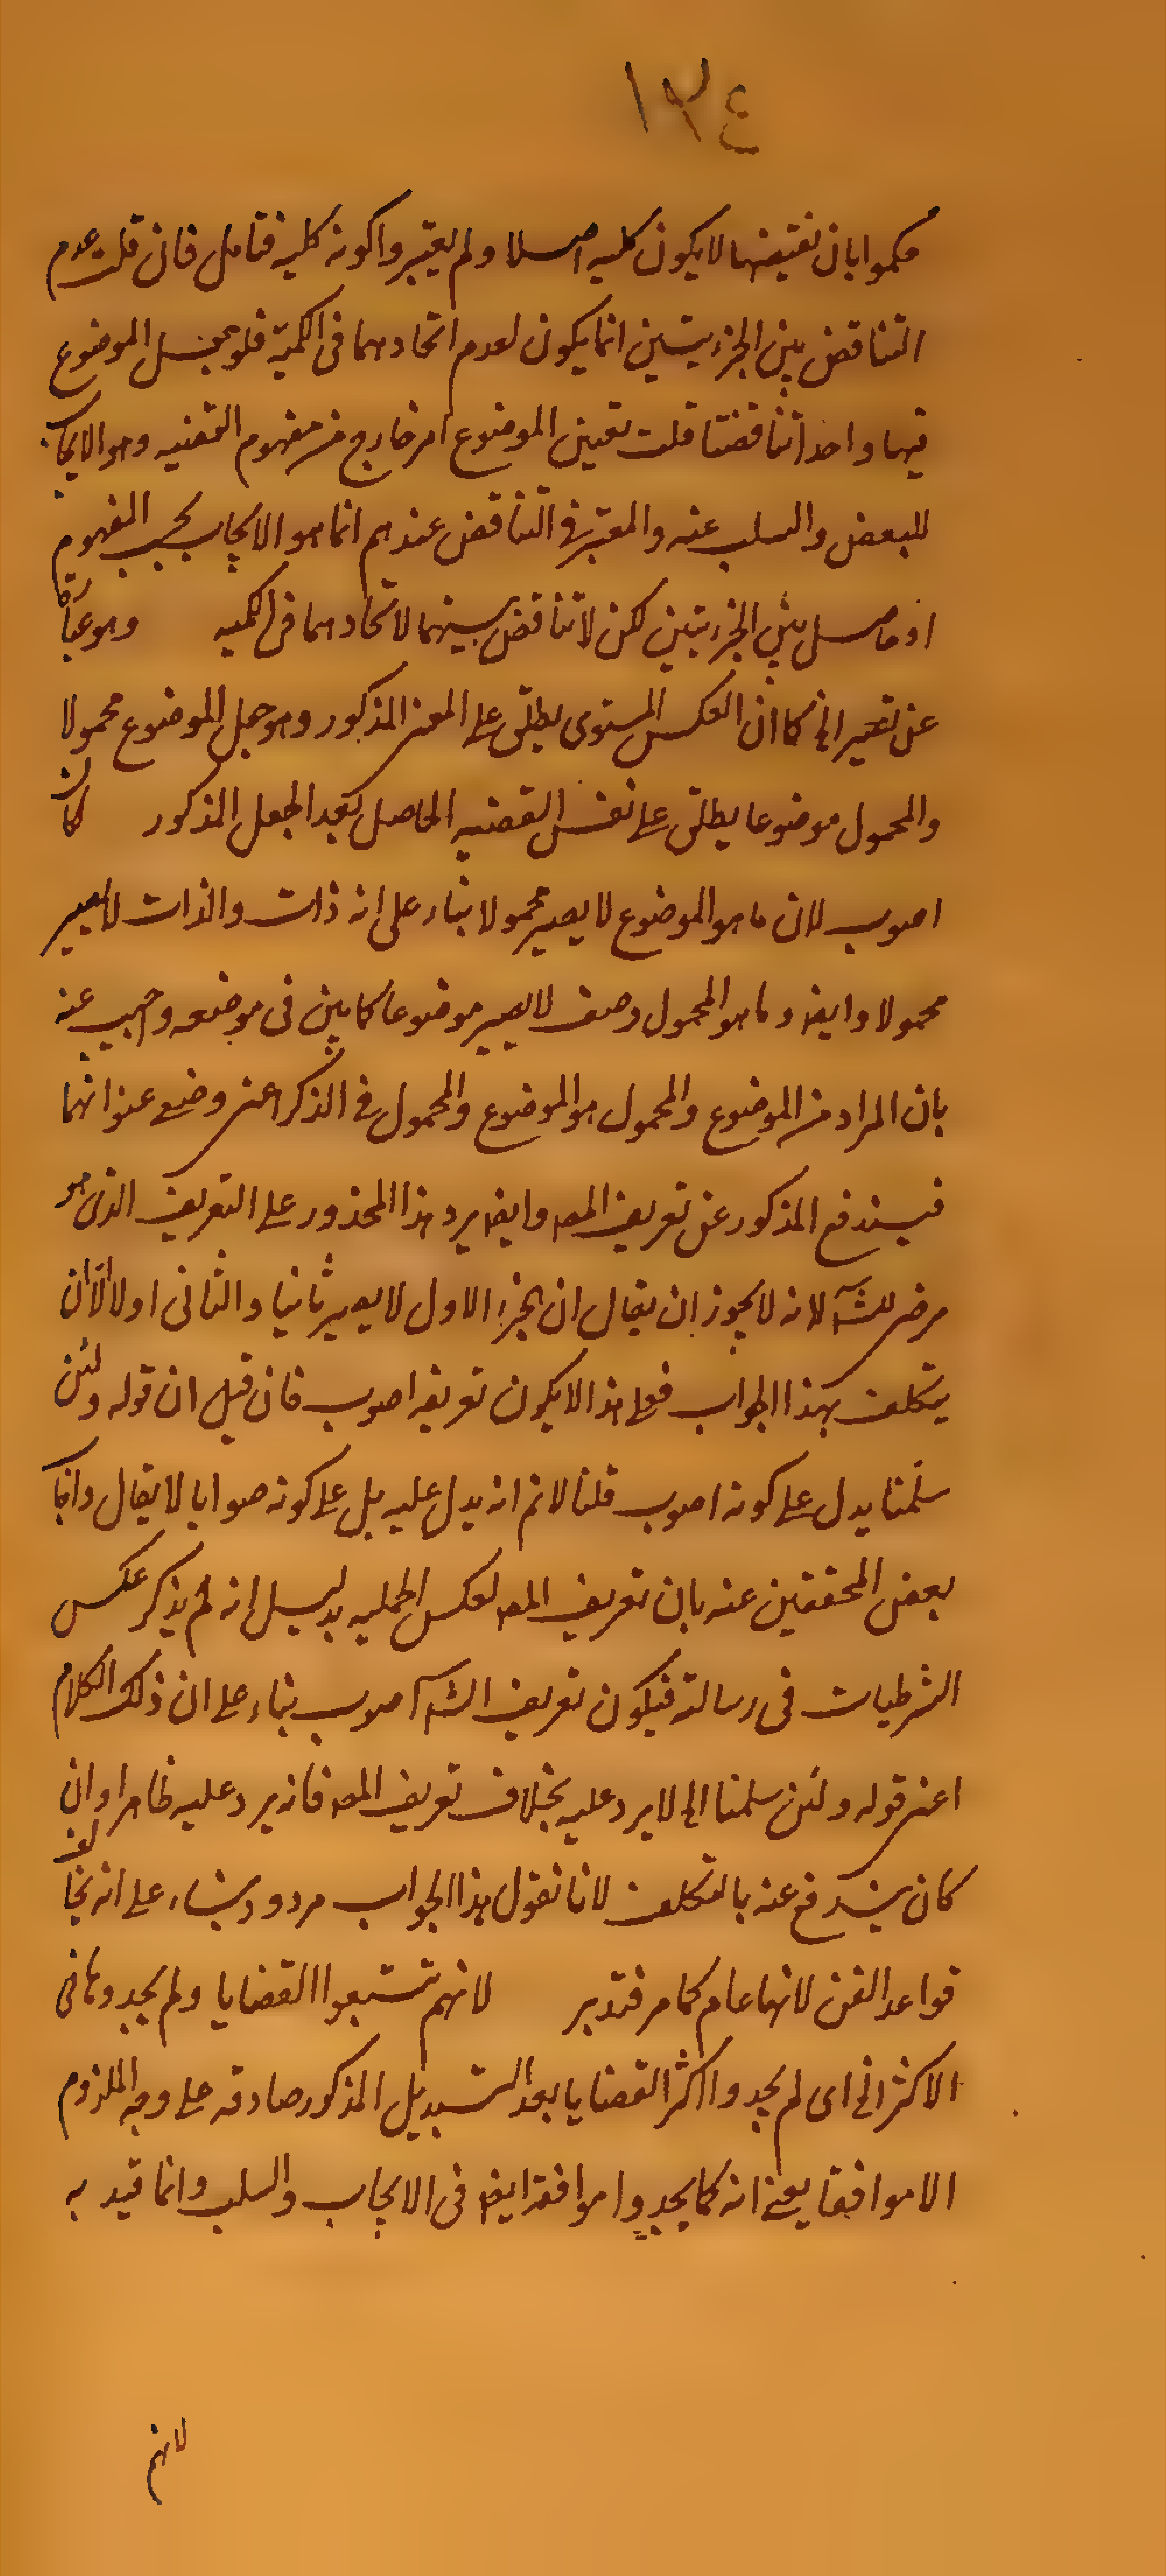 ١٣٤
حكموا بان نقيضها لا يكون كليه اصلا ولم يعتبروا كونه كليه فتامل فان قلت عدم
التناقض بين الجزئيتين انما يكون لعدم اتحادهما فى الكمية فلو جعل الموضوع
فيهما واحدا تناقضتا قلت تعين الموضوع امر خارج من مفهوم القضيه وهو الايجاب
للبعض والسلب عنه والمعتبر فى التناقض عندهم انما هو الايجاب بحسب المفهوم
او حاصل بين الجزئيتين لكن لا تناقض بينهما لاتحادهما فى الكميه وهو عبارة
عن تصيير الخ كما ان العكس المستوى يطلق على المعنى المذكور وهو جعل الموضوع محمولا
والمحمول موضوعا يطلق على نفس القضيه الحاصل بعد الجعل المذكور كان
اصوب لان ما هو الموضوع لا يصير محمولا بناء على انه ذات والذات لا يصير
محمولا وايضه وما هو المحمول وصف لا يصير موضوعا كما بين فى موضعه واجيب عنه
بان المراد من الموضوع والمحمول هو الموضوع والمحمول فى الذكر اعنى وضع عنوانهما
فيندفع المذكور عن تعريف المصه وايضه يرد هذا المحذور على التعريف الذى هو
مرضى للشه لانه لا يجوز ان يقال ان الجزء الاول لا يصير ثانيا والثانى اولا الا ان
يتكلف بهذا الجواب فعلى هذا لا يكون تعريفه اصوب فان قيل ان قوله ولئن
سلمنا يدل على كونه اصوب قلنا لا نم انه يدل عليه بل على كونه صوابا لا يقال واجاب
بعض المحققين عنه بان تعريف المصه لعكس الحمليه بدليل انه لم يذكر عكس
الشرطيات فى رسالته فيكون تعريف الشه اصوب بناء على ان ذلك الكلام
اعنى قوله ولئن سلمنا الخ لا يرد عليه بخلاف تعريف المصه فانه يرد عليه ظاهرا وان
كان يندفع عنه بالتكلف لانا نقول هذا الجواب مردود بناء على انه يخالف
قواعد الفن لانها عام كما مر فتدبر لانهم تتبعوا القضايا ولم يجدوها فى
الاكثر الخ اى لم يجدوا اكثر القضايا بعد التبديل المذكور صادقه على وجه الملزوم
الا موافقا يعنى انه كما يجدوا موافقة ايضه فى الايجاب والسلب وانما قيد به
لانهم